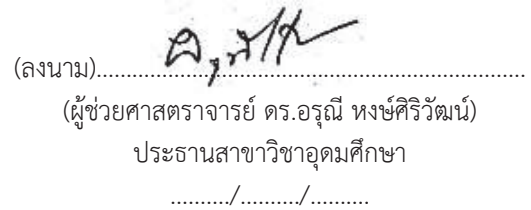 (ลงนาม)....................................................................................
(ผู้ช่วยศาสตราจารย์ ดร.อรุณี หงษ์ศิริวัฒน์)
ประธานสาขาวิชาอุดมศึกษา
........../........../..........